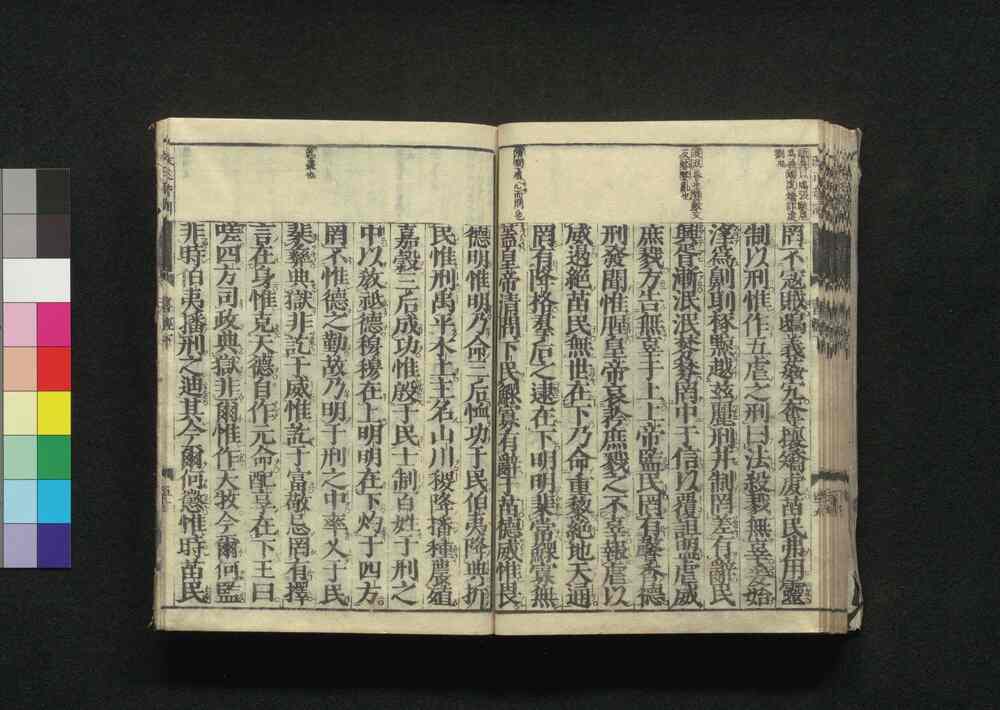 罔不寇賊鴟義姦宄奪攘矯虔苗民弗用靈
制以刑惟作五虐之刑曰法殺戮無辜爰始
淫爲劓刵椓黥越茲麗刑并制罔差有辭民
興胥漸泯泯棼棼罔中于信以覆詛盟虐威
庶戮方告無辜于上上帝監民罔有馨香德
刑發聞惟腥皇帝哀矜庶戮之不辜報虐以
威遏絕苗民無世在下乃命重黎絕地天通
罔有降格羣后之逮在下明明棐常鰥寡無
蓋皇帝清問下民鰥寡有辭于苗德威惟畏
德明惟明乃命三后恤功于民伯夷降典折
民惟刑禹平水土主名山川稷降播種農殖
嘉穀三后成功惟殷于民士制百姓于刑之
中以教祗德穆穆在上明明在下灼于四方
罔不惟德之勤故乃明于刑之中率乂于民
棐彝典獄非訖于威惟訖于富敬忌罔有擇
言在身惟克天德自作元命配享在下王曰
嗟四方司政典獄非爾惟作天牧今爾何監
非時伯夷播刑之迪其今爾何懲惟時苗民